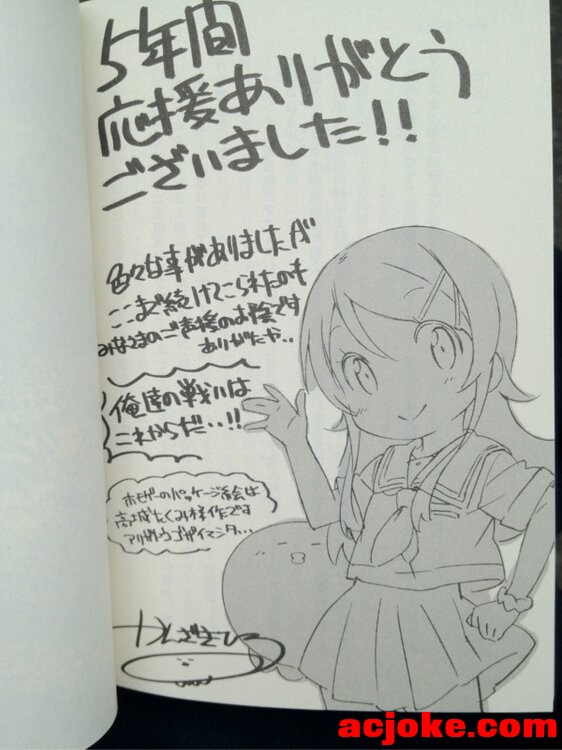 5年間
応援ありがとう
ございました!!
色々な事がありましたが
ここまで続けてこられたのも
みなさまのご声援のお陰です
ありがたや..
俺達の戦いは
これからだ..!!
ホモゲーのパッケージ絵は
高城たくみ様作です
アリガトウゴザイマシタ...
かんざきひろ
acjoke.com